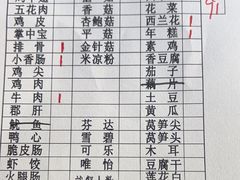 五花肉 香菇 花菜
鸡皮 杏鲍菇 西兰花
掌中宝 平菇 年糕
排骨 金针菇 素鸡
小香肠 米凉粉 香豆腐
鸡尖 茄子
鸡肉 藕片
牛肉 土豆
郡肝 黄瓜
鱿鱼 芬达 莴笋头
鸭心 雪碧 莴笋尖
脆皮肠 可乐 木耳
虾饺 唯怡 白菜
火腿肠 豆腐干